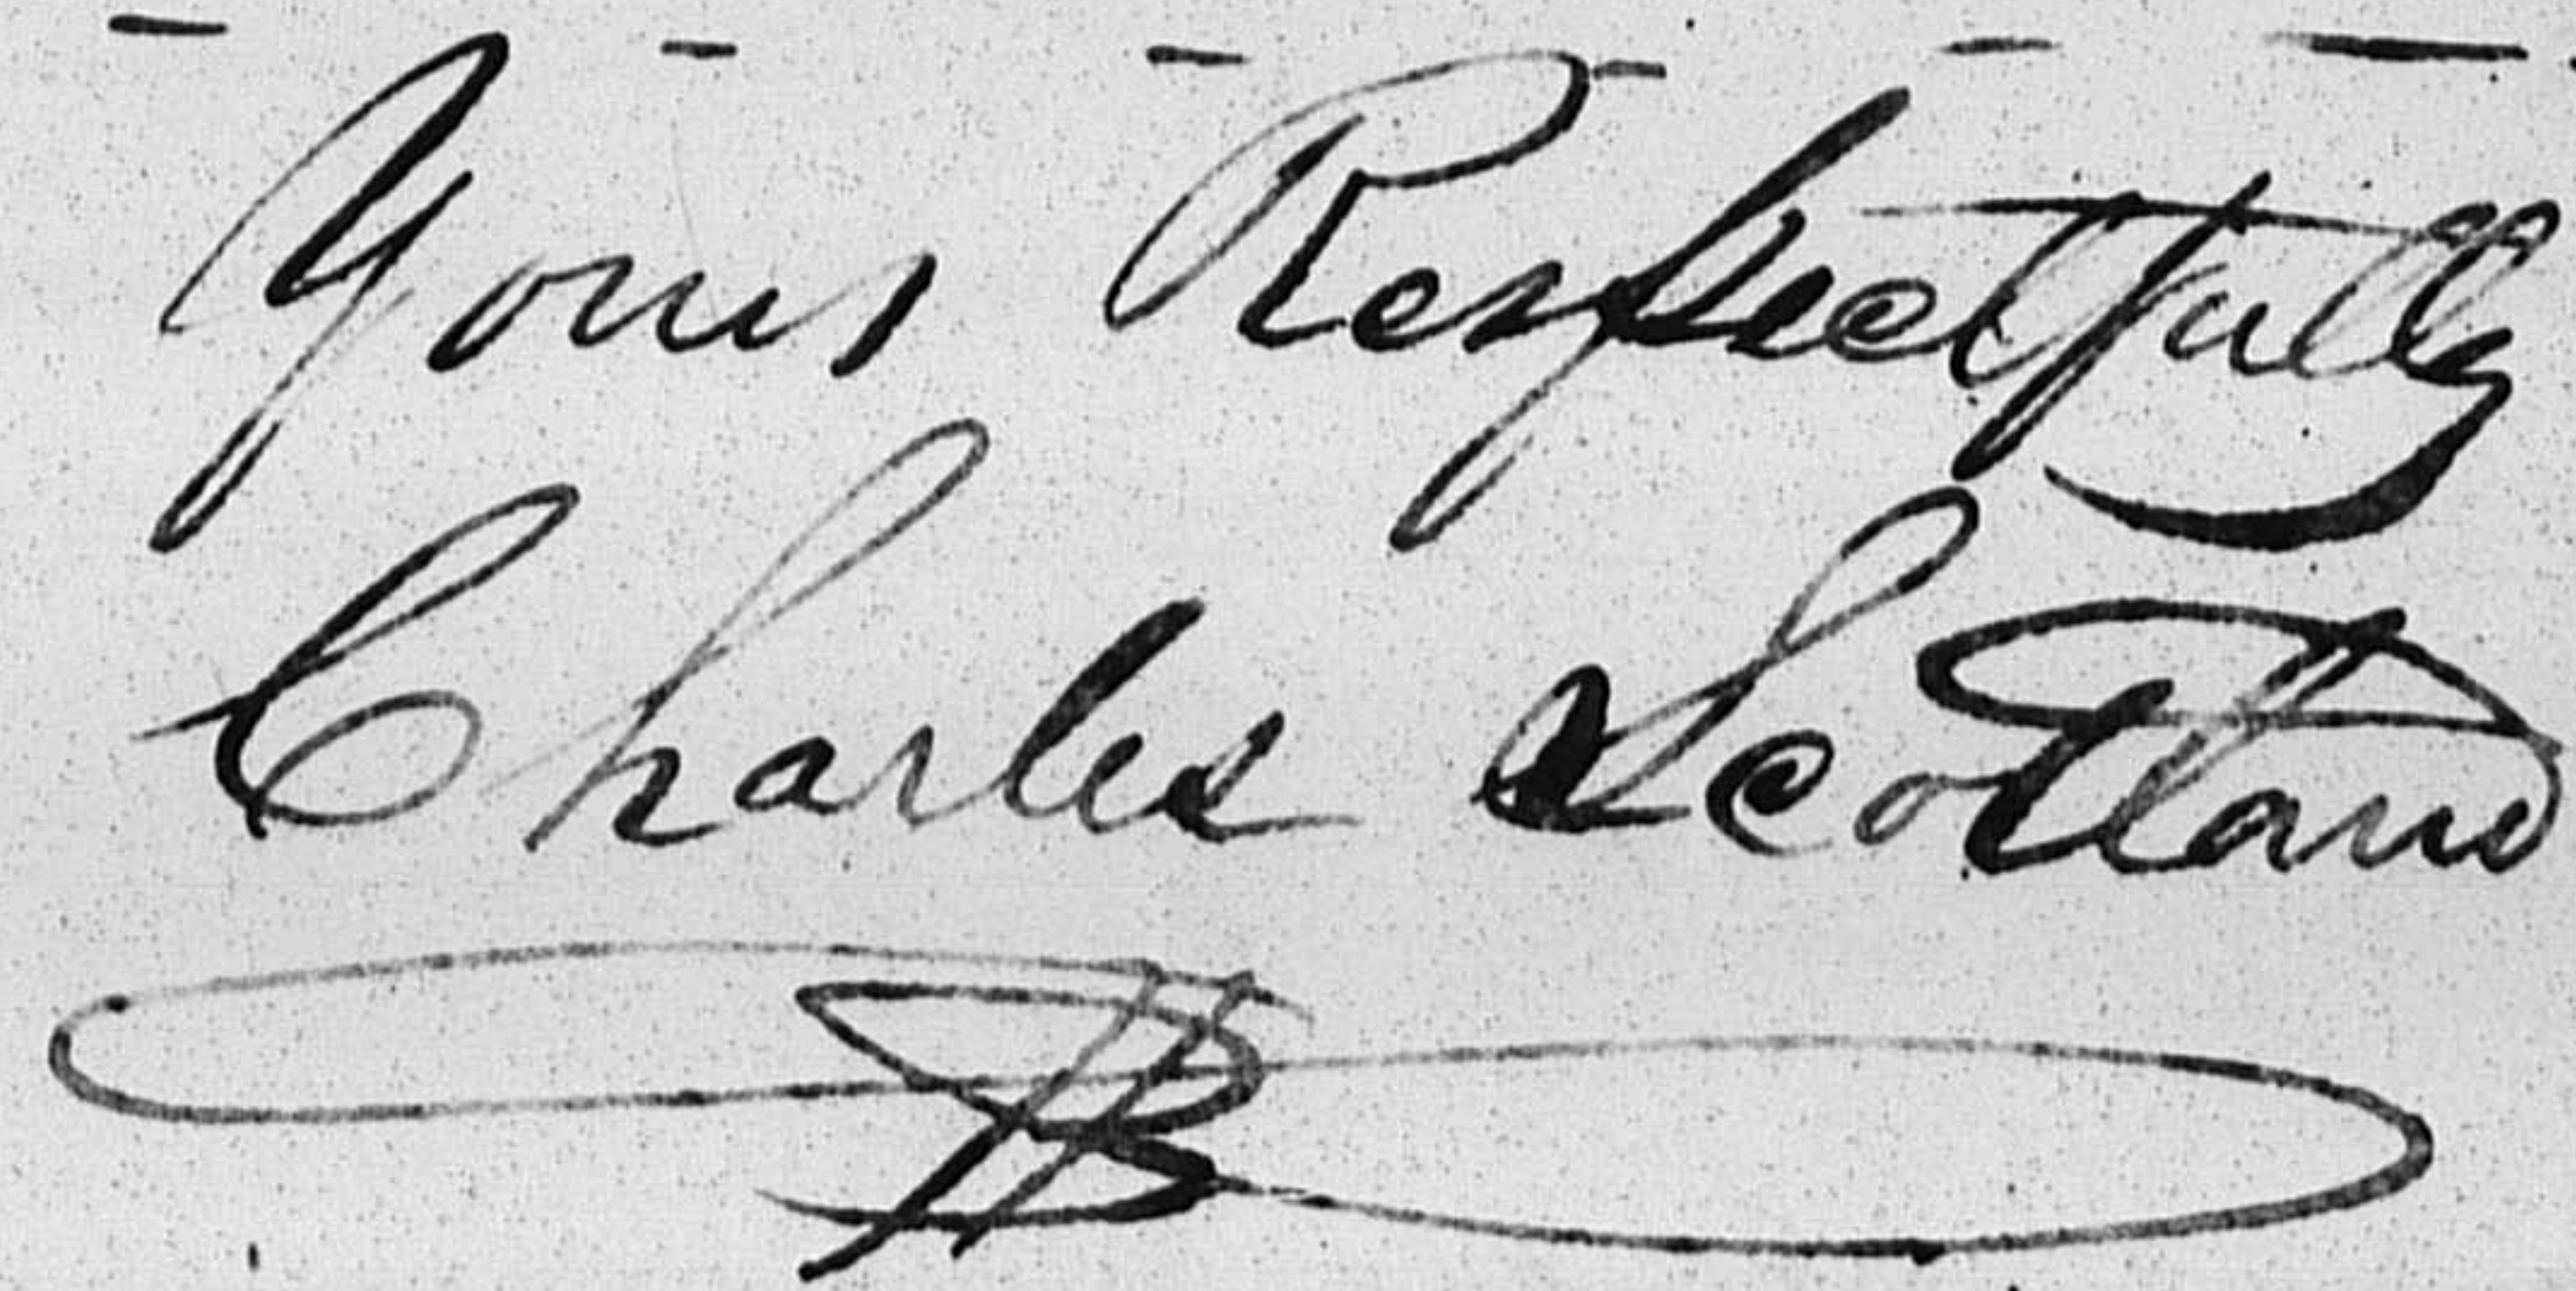 Yours Respectfully
Charles Scotland